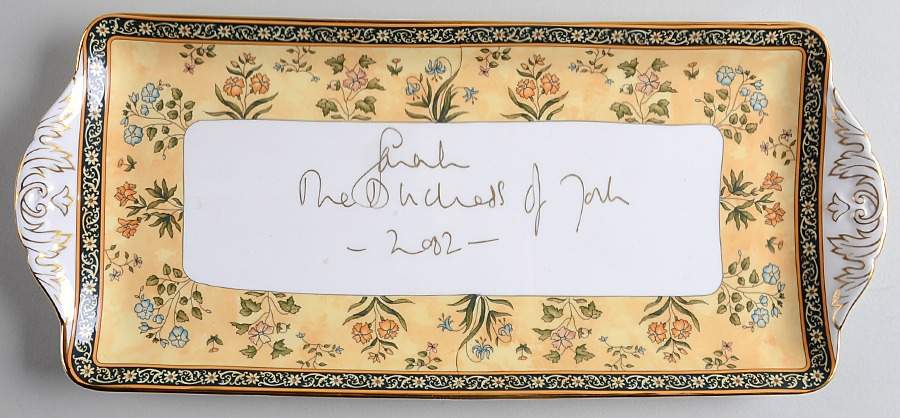 Sarah
The Duchess of York
- 2002 -